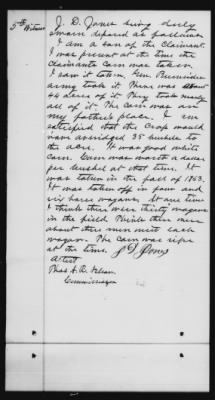 5th Witness
J. D. Jones being duly
sworn deposed as follows
I am a son of the claimant.
I was present at the time the
claimants corn was taken.
I saw it taken. Gen.
army took it. There was about
acres of it. They took nearly
all of it. The corn was on
my father's place. I am
satisfied that the crop would
have averaged 35 bushels to
the acre. It was good white
corn. Corn was worth a dollar
per bushel at that time. It
was taken in the fall of 1863.
It was taken off in four and
six horse wagons. At one time
I think there were thirty wagons
in the field. Think there were
about three men with each
wagon. The corn was ripe
at the time. J D Jones
Attest
Commissioner